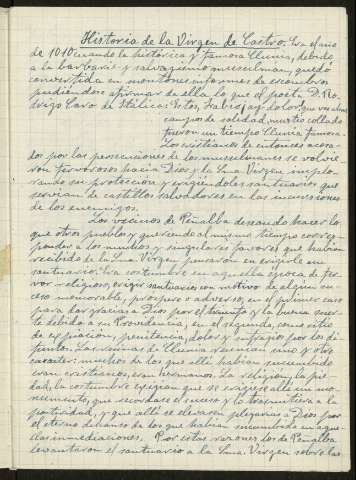 Historia de la Virgen de Castro. Era el año
de 1010 cuando la histórica y famosa Clunia, debido
a la barbarie y salvagismo musulman, quedó
convertida en montones informes de escombros
pudiendose afirmar de ella lo que el poeta D. Ro-
drigo Caro de Itálica: Estos, Fabio ¡ay dolor! que ves ahora
campos de soledad, mustio collado
fueron un tiempo Clunia famosa.
Los cristianos de entonces acosa-
dos por las persecuciones de los musulmanes se volvie-
ron fervorosos hacia Dios y la Sma. Virgen, implo-
rando su protección y erigiendoles santuarios que
servian de castillos salvadores en las incursiones
de los enemigos.
Los vecinos de Peñalba deseando hacer lo
que otros pueblos y queriendo al mismo tiempo corres-
ponder a los muchos y singulares favores que habian
recibido de la Sma. Virgen pensaron en erigirle un
santuario. Era costumbre en aquella época de fer-
vor religioso, erigir santuarios con motivo de algun su-
ceso memorable, prospero o adverso; en el primer caso
para dar gracias a Dios por el triunfo y la buena suer-
te debido a su Providencia, en el segundo, como sitio
de expiación, penitencia, dolor y sufragio por los di-
funtos. Las ruinas de Clunia tenian uno y otro
caracter: muchos de los que alli habian sucumbido
eran cristianos, eran hermanos. La religión, la pie-
dad, la costumbre exigian que se erigiese alli un mo-
numento, que recordase el suceso y lo trasmitiera a la
posteridad, y que alli se elevasen plegarias a Dios por
el eterno descanso de los que habian sucumbido en aque-
llas inmediaciones. Por estas razones los de Peñalba
levantaron el santuario a la Sma. Virgen sobre las